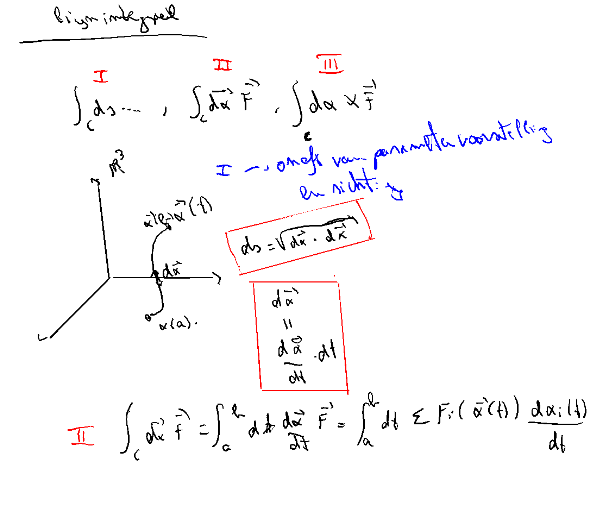 Lijnintegraal
I II III
∫_c ds ... , ∫_c dα⃗ F⃗ , ∫_c dα × F⃗
I → onafh van parametervoorstelling
en richting
ℝ³
α⃗(t)
dα⃗
α(a).
ds = √(dα⃗ · dα⃗)
dα⃗
=
dα⃗/dt · dt
II ∫_c dα⃗ F⃗ = ∫_a^b dt dα⃗/dt F⃗ = ∫_a^b dt Σ F_i(α⃗(t)) dα_i(t)/dt